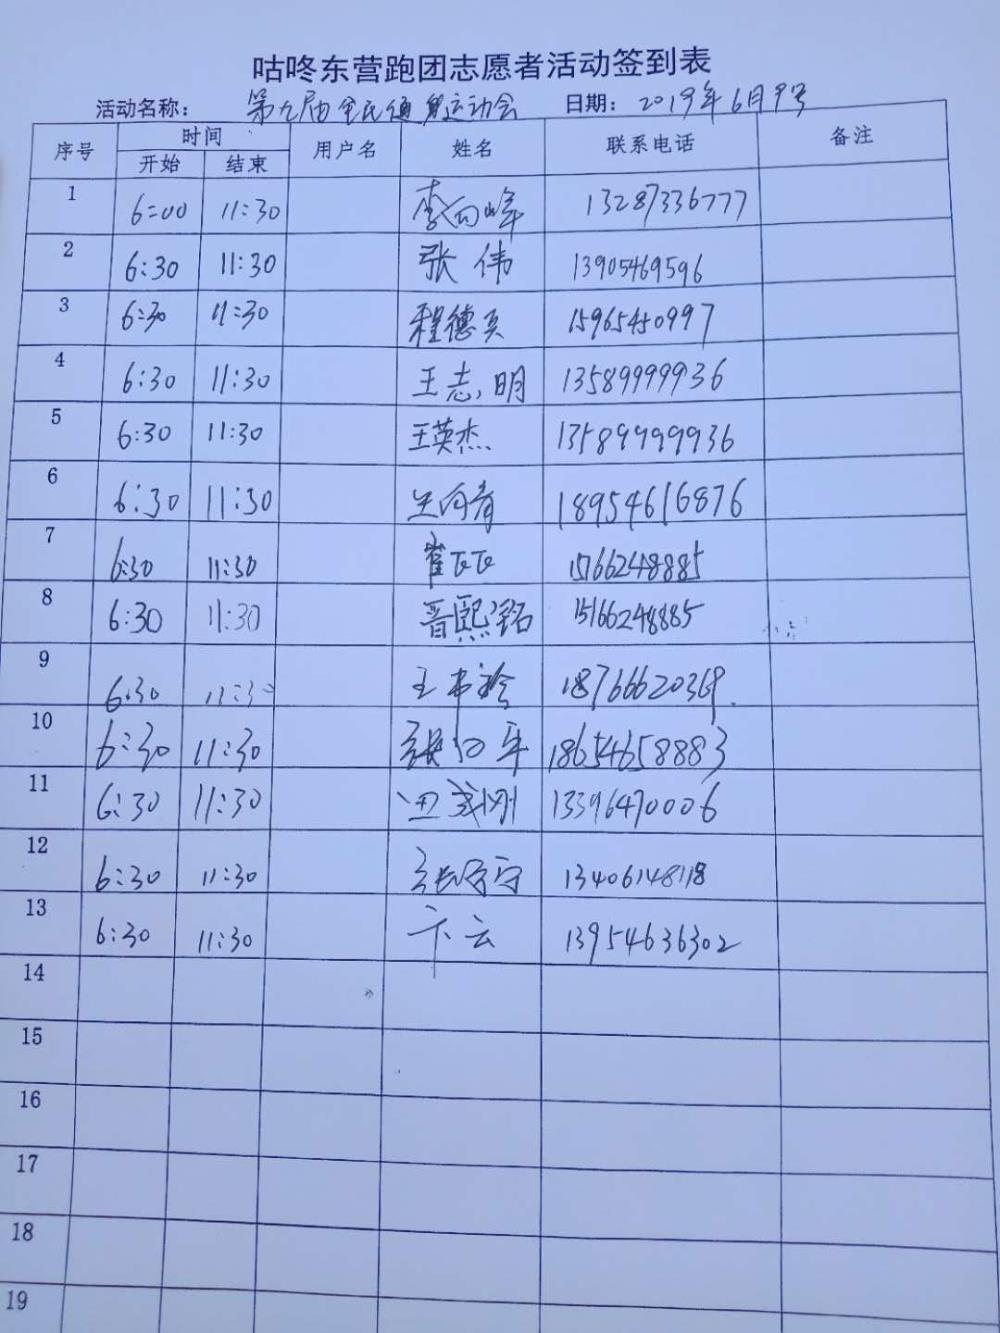 咕咚东营跑团志愿者活动签到表
活动名称： 第九届全民健身运动会 日期： 2019年6月9号
序号 时间 用户名 姓名 联系电话 备注
开始 结束
1 6:00 11:30 李向峰 13287336777
2 6:30 11:30 张伟 13905469596
3 6:30 11:30 程德 15965450997
4 6:30 11:30 王志明 13589999936
5 6:30 11:30 王英杰 13589999936
6 6:30 11:30 18954616876
7 6:30 11:30 崔 15166248885
8 6:30 11:30 晋熙铭 15166248885
9 6:30 11:30 王 18766620369
10 6:30 11:30 张 18654658883
11 6:30 11:30 13396470006
12 6:30 11:30 张 13406148118
13 6:30 11:30 卞云 13954636302
14
15
16
17
18
19